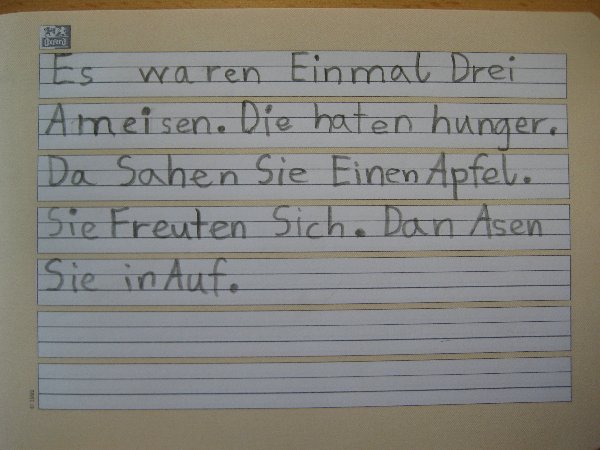 Es waren Einmal Drei
Ameisen. Die haten hunger.
Da Sahen Sie Einen Apfel.
Sie Freuten Sich. Dan Asen
Sie in Auf.